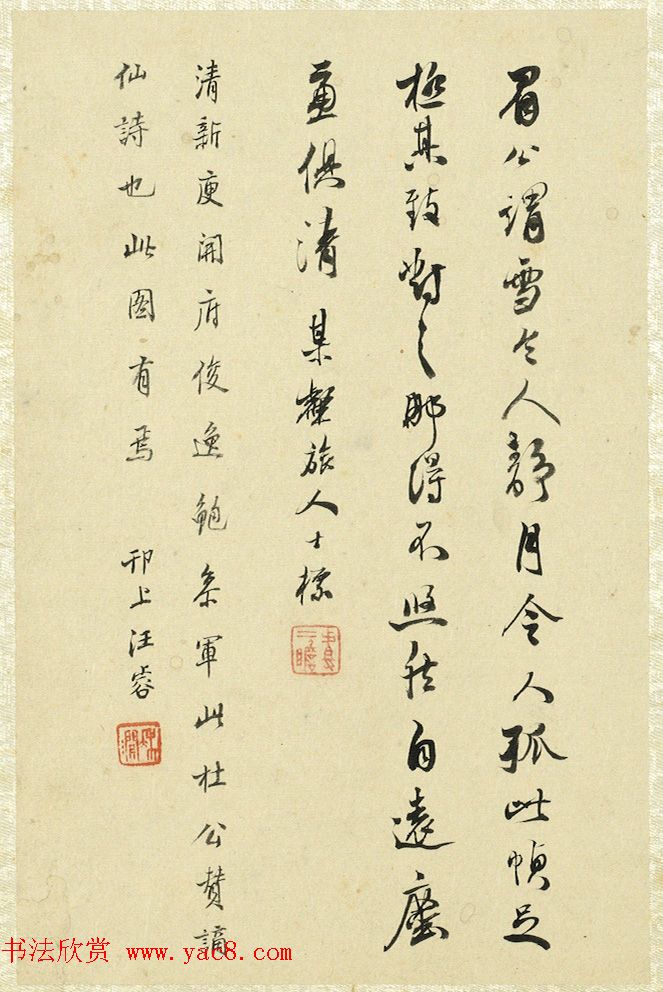 眉公謂雪令人靜月令人孤此幀足
極其致對之那得不然自遠塵
俱清 某壑旅人士標
清新庾開府俊逸鮑參軍此杜公贊謫
仙詩也此圖有焉 邗上汪
书法欣赏 www.yac8.com